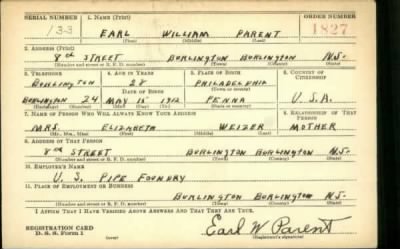 SERIAL NUMBER 1. NAME (Print) ORDER NUMBER
133 EARL WILLIAM PARENT 1827
(First) (Middle) (Last)
2. ADDRESS (Print)
8th STREET BURLINGTON BURLINGTON N.J.
(Number and street or R. F. D. number) (Town) (County) (State)
3. TELEPHONE 4. AGE IN YEARS 5. PLACE OF BIRTH 6. COUNTRY OF CITIZENSHIP
BURLINGTON 28 PHILADELPHIA
(Town or county)
DATE OF BIRTH
BURLINGTON 24 MAY 15 1912 PENNA U.S.A.
(Exchange) (Number) (Mo.) (Day) (Yr.) (State or country)
7. NAME OF PERSON WHO WILL ALWAYS KNOW YOUR ADDRESS 8. RELATIONSHIP OF THAT PERSON
MRS. ELIZABETH WEIZER MOTHER
(Mr., Mrs., Miss) (First) (Middle) (Last)
9. ADDRESS OF THAT PERSON
8th STREET BURLINGTON BURLINGTON N.J.
(Number and street or R. F. D. number) (Town) (County) (State)
10. EMPLOYER'S NAME
U. S. PIPE FOUNDRY
11. PLACE OF EMPLOYMENT OR BUSINESS
BURLINGTON BURLINGTON N.J.
(Number and street or R. F. D. number) (Town) (County) (State)
I AFFIRM THAT I HAVE VERIFIED ABOVE ANSWERS AND THAT THEY ARE TRUE.
REGISTRATION CARD
D. S. S. Form 1 (over) Earl W Parent
(Registrant's signature)